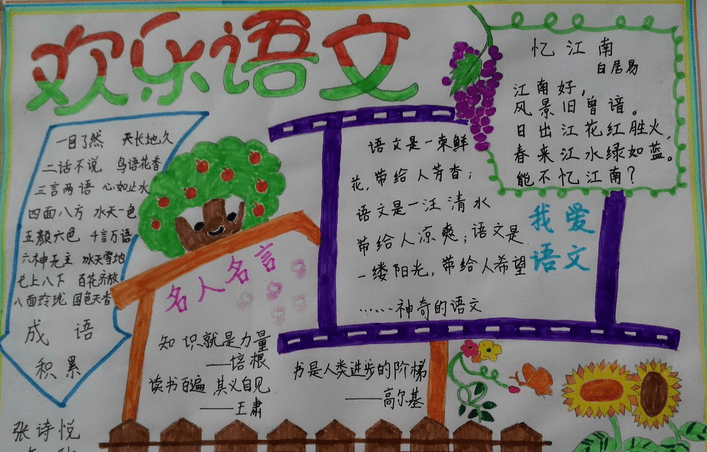 欢乐语文
一目了然 天长地久
二话不说 鸟语花香
三言两语 心如止水
四面八方 水天一色
五颜六色 千言万语
六神无主 冰天雪地
七上八下 百花齐放
八面玲珑 国色天香
成语
积累
名人名言
知识就是力量
——培根
读书百遍 其义自见
——王肃
书是人类进步的阶梯
——高尔基
语文是一束鲜
花,带给人芳香;
语文是一汪清水
带给人凉爽;语文是
一缕阳光,带给人希望
……神奇的语文
忆江南
白居易
江南好,
风景旧曾谙。
日出江花红胜火,
春来江水绿如蓝。
能不忆江南?
我爱
语文
张诗悦